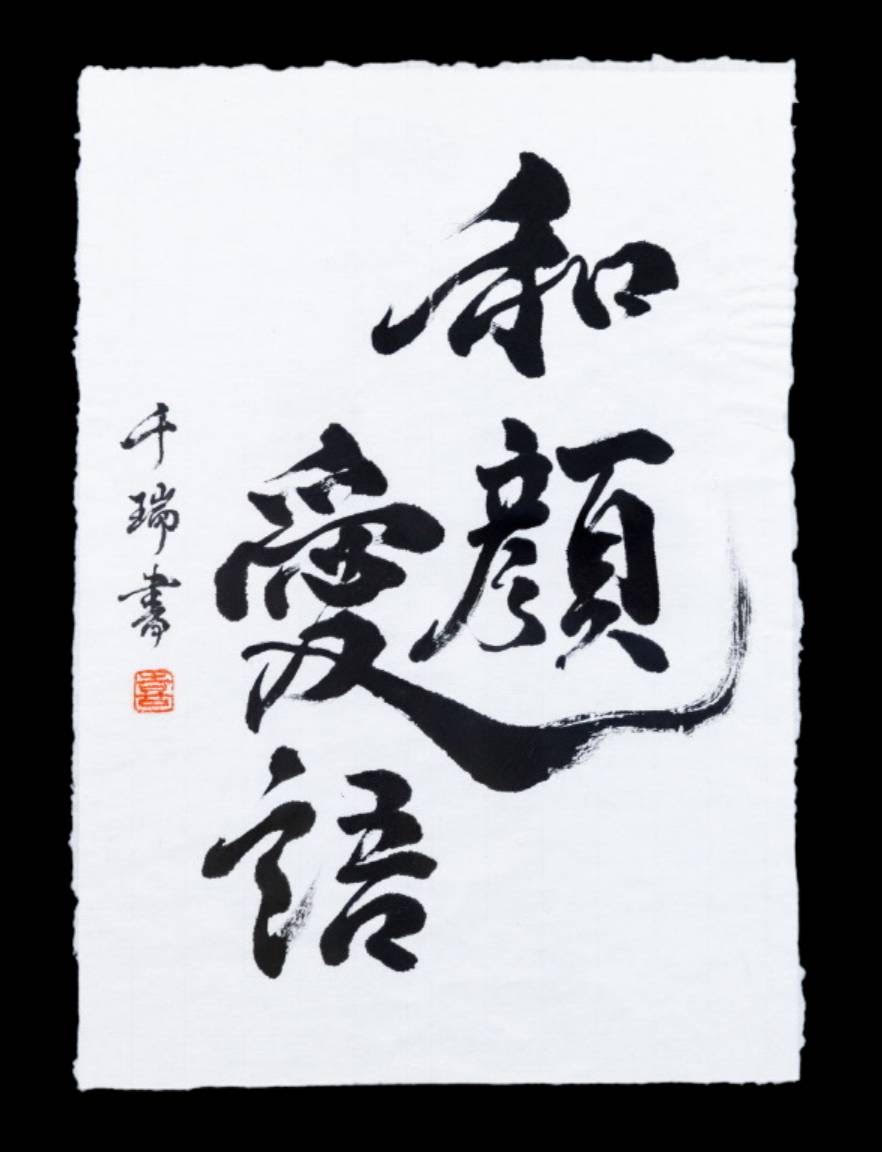 和顔
愛語
千瑞書